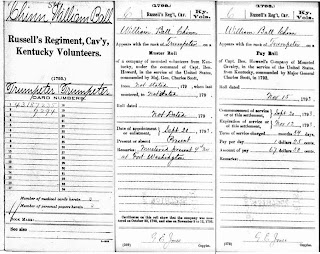 Chinn, William Ball
Russell's Regiment, Cav'y,
Kentucky Volunteers.
(1793.)
Trumpeter Trumpeter
CARD NUMBERS.
1
2
3
4
5
6
7
8
9
10
11
12
13
14
15
16
17
18
19
20
Number of medical cards herein
Number of personal papers herein
BOOK MARK:
See also
C
Russell's Reg't, Cav.
Ky. Vols.
(1793.)
William Ball Chinn
Appears with the rank of Trumpeter on a
Muster Roll
of a company of mounted volunteers from Kentucky,
under the command of Capt. Ben.
Howard, in the service of the United States,
commanded by Maj. General Charles Scott,
from Not stated, 179 , when last
mustered, to Not stated, 179 .
Roll dated
Not Stated, 179 .
Date of appointment or enlistment, Sept. 20, 1793.
Present or absent Present
Remarks: Mustered present
at Fort Washington
Copyist.
Russell's Reg't, Cav.
Ky. Vols.
(1793.)
William Ball Chinn
Appears with the rank of Trumpeter on a
Pay Roll
of Capt. Ben. Howard's company of Mounted
Cavalry, in the service of the United States,
from Kentucky, commanded by Major General
Charles Scott, in 1793.
Roll dated
Nov. 15, 179 .
Commencement of service or of this settlement, Sept. 20, 1793.
Expiration of service or of this settlement, Nov. 12, 1793.
Term of service charged, months 54 days.
Pay per day 1 dollars cts.
Amount of pay dollars cts.
Remarks:
Copyist.